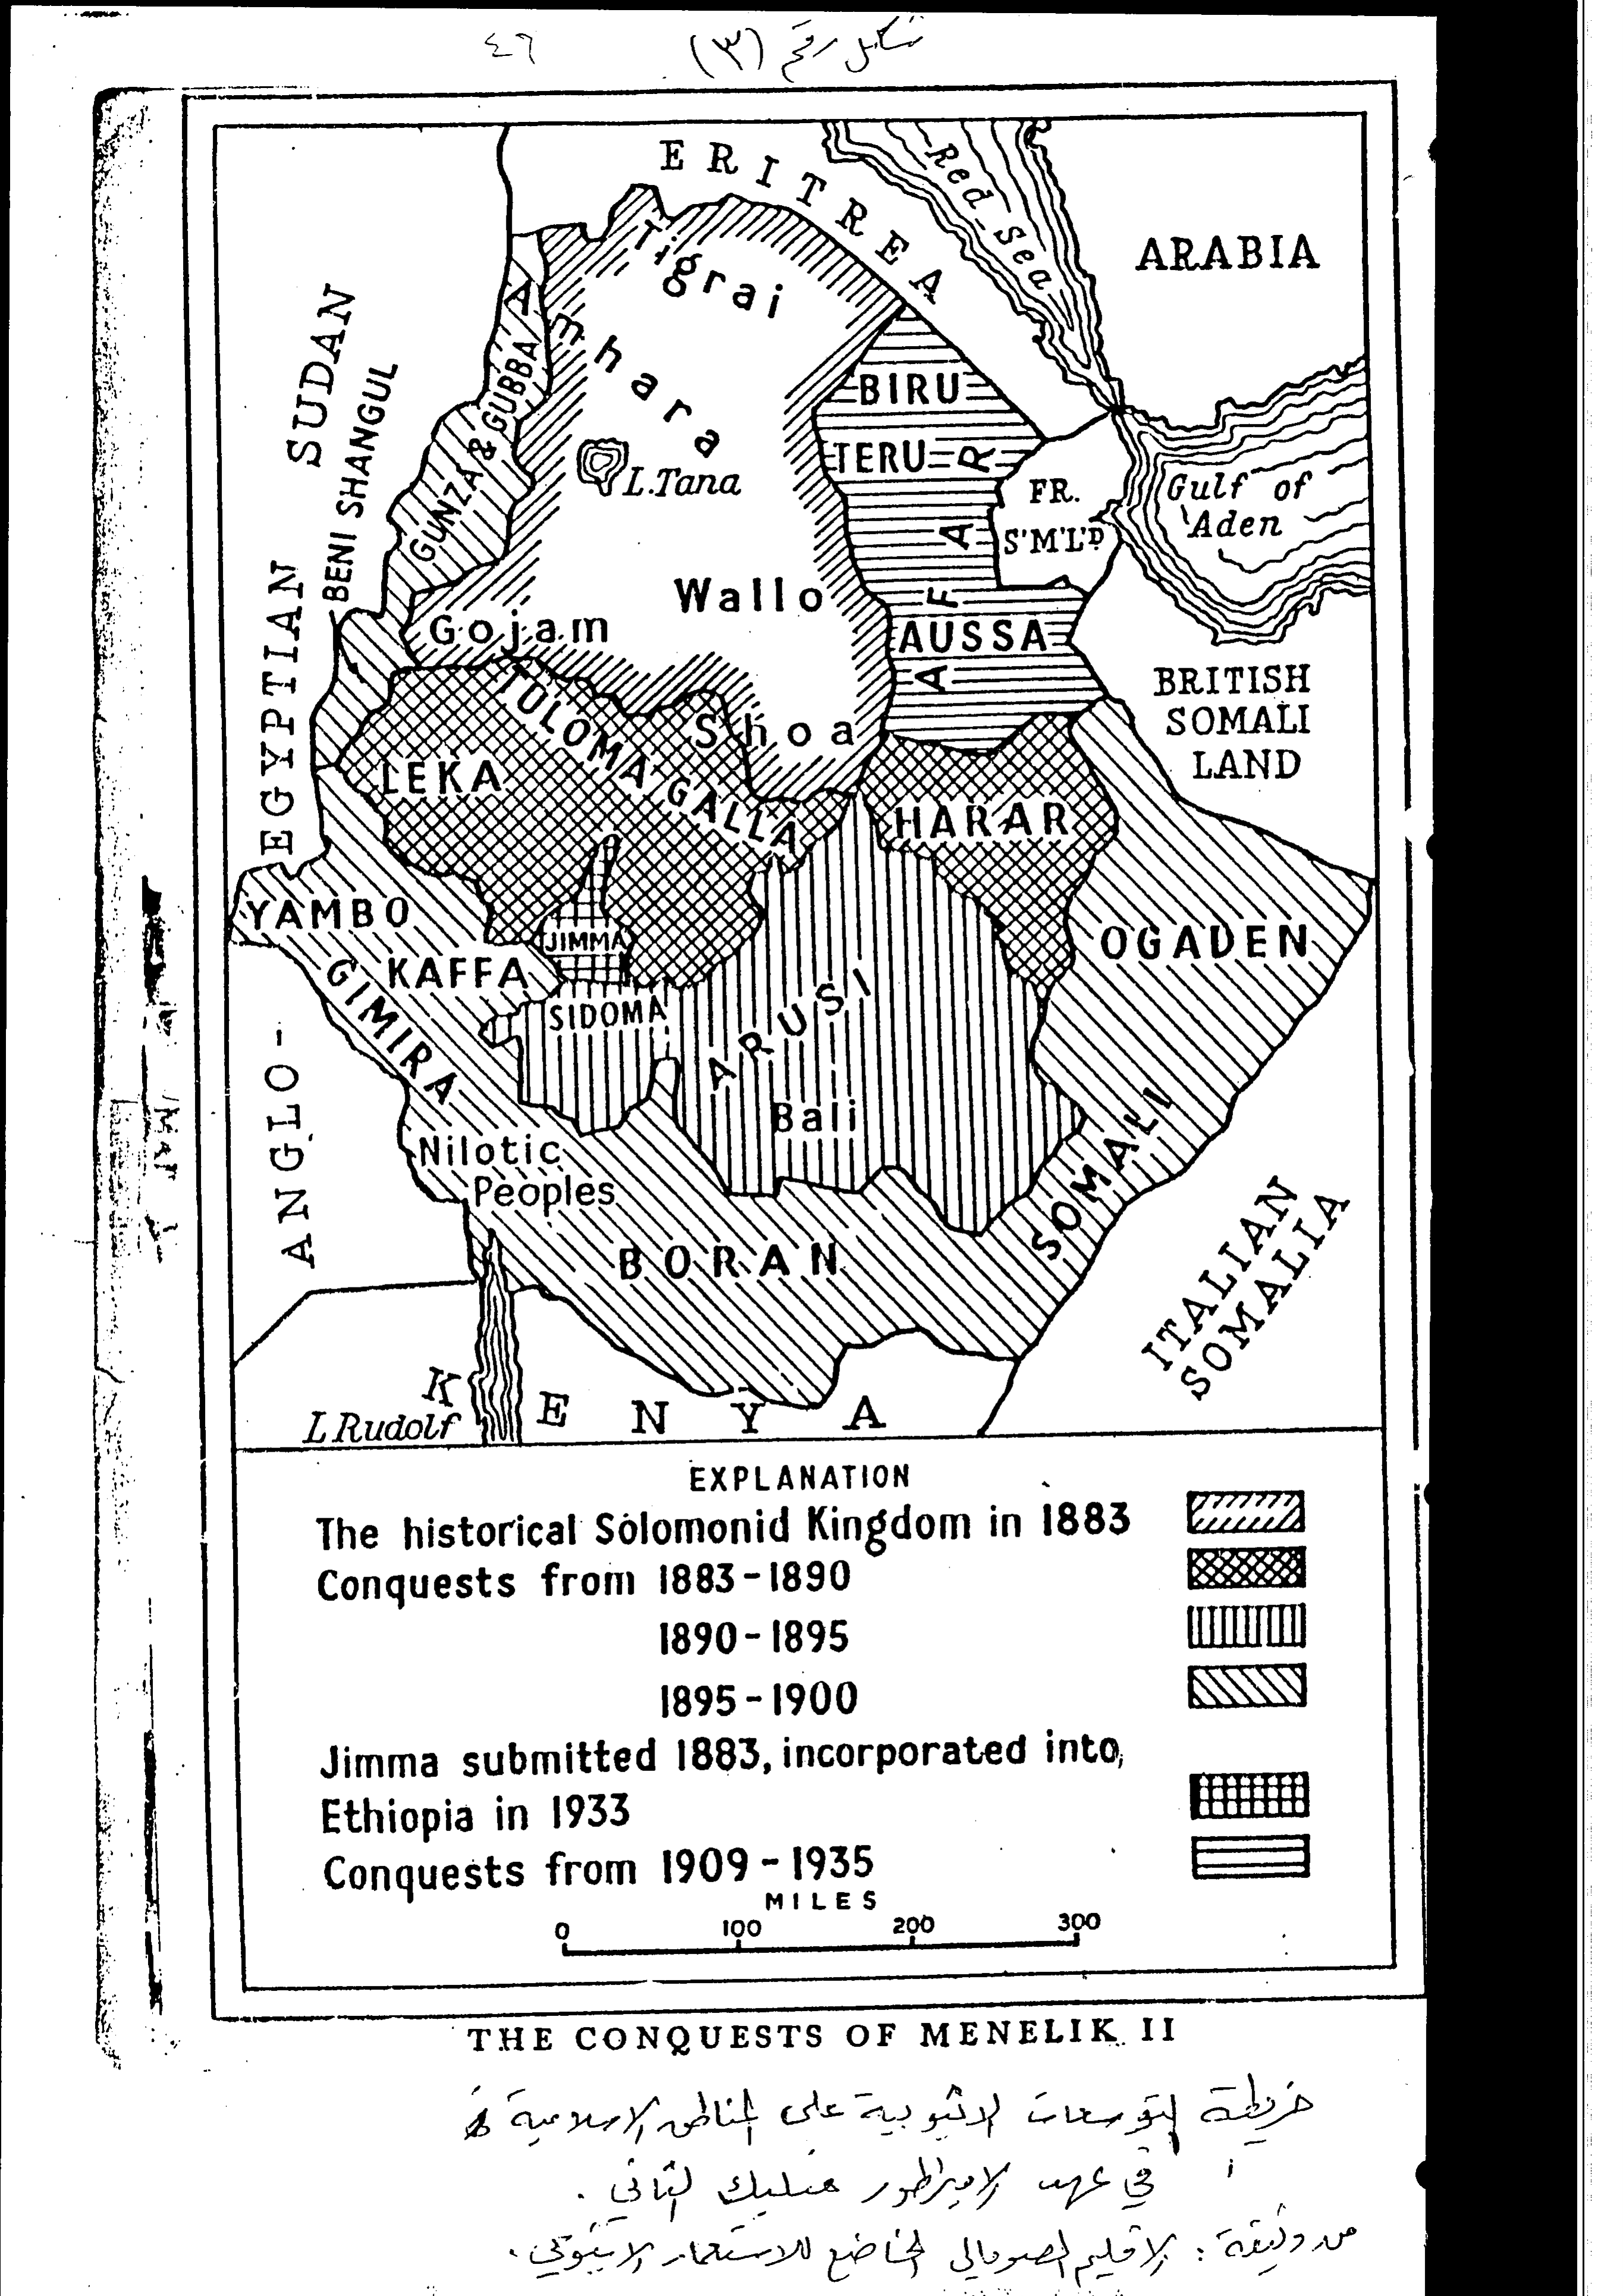 شكل رقم (٣) ٤٦
ERITREA
Red Sea
ARABIA
Tigrai
Amhara
SUDAN
BENI SHANGUL
GUNZA & GUBBA
BIRU
TERU
AFAR
L.Tana
FR.
S'M'L'D
Gulf of
Aden
Wallo
Gojam
AUSSA
ANGLO-EGYPTIAN
BRITISH
SOMALI
LAND
TULOMA GALLA
Shoa
LEKA
HARAR
YAMBO
JIMMA
OGADEN
KAFFA
GIMIRA
SIDOMA
ARUSI
Bali
Nilotic
Peoples
SOMALI
BORAN
ITALIAN
SOMALIA
KENYA
L Rudolf
EXPLANATION
The historical Solomonid Kingdom in 1883
Conquests from 1883-1890
1890-1895
1895-1900
Jimma submitted 1883, incorporated into
Ethiopia in 1933
Conquests from 1909-1935
MILES
0 100 200 300
THE CONQUESTS OF MENELIK II
خريطة التوسعات الاثيوبية على المناطق الاسلامية
في عهد الامبراطور منليك الثاني .
من وثيقة : الاقليم الصومالي الخاضع للاستعمار الاثيوبي .